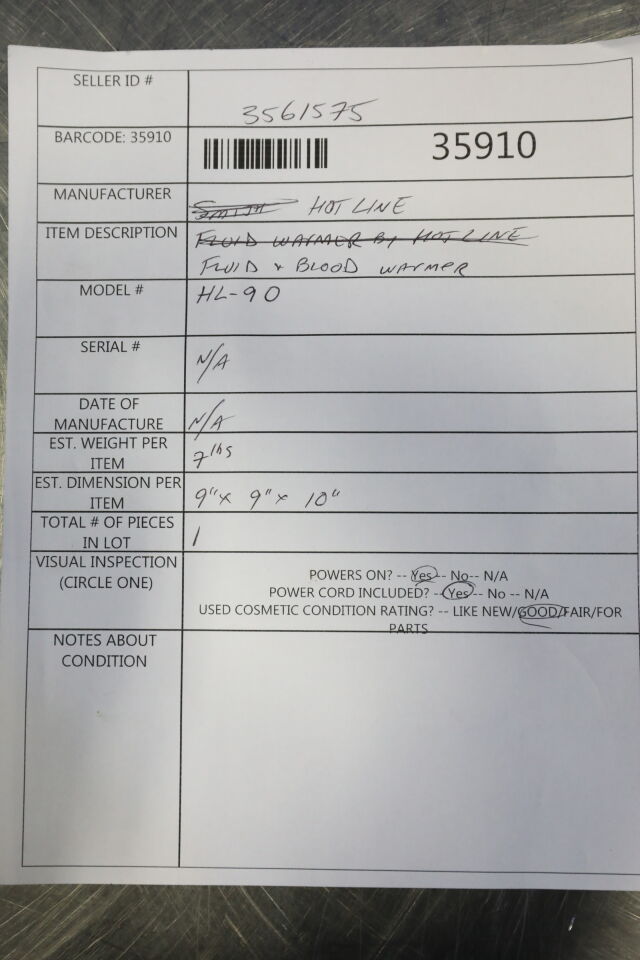 SELLER ID #
3561575
BARCODE: 35910
35910
MANUFACTURER
SMITH HOTLINE
ITEM DESCRIPTION
FLUID WARMER BY HOTLINE
FLUID & BLOOD WARMER
MODEL #
HL-90
SERIAL #
N/A
DATE OF
MANUFACTURE
N/A
EST. WEIGHT PER
ITEM
7 lbs
EST. DIMENSION PER
ITEM
9" x 9" x 10"
TOTAL # OF PIECES
IN LOT
1
VISUAL INSPECTION
(CIRCLE ONE)
POWERS ON? -- Yes -- No -- N/A
POWER CORD INCLUDED? -- Yes -- No -- N/A
USED COSMETIC CONDITION RATING? -- LIKE NEW/GOOD/FAIR/FOR
PARTS
NOTES ABOUT
CONDITION